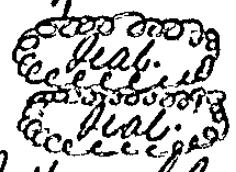 Seal.
Seal.